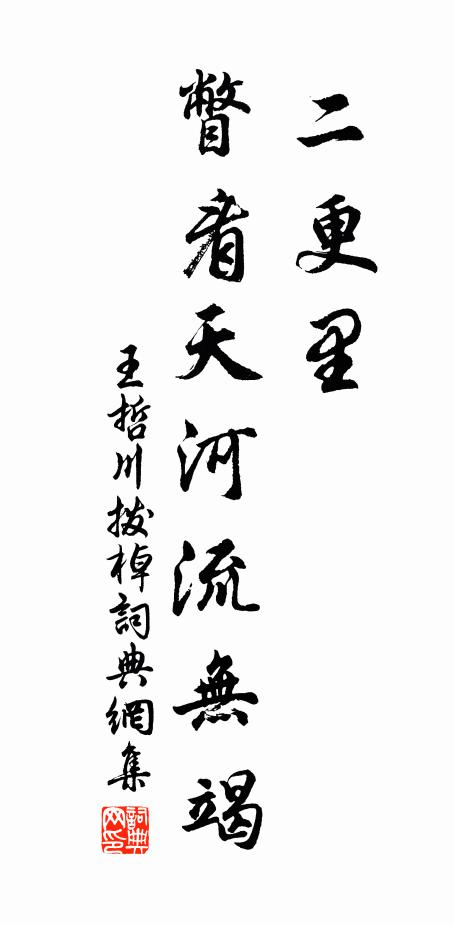 二更里
瞥看天河流無竭
王哲川撥棹詞典網集
詞典
网印